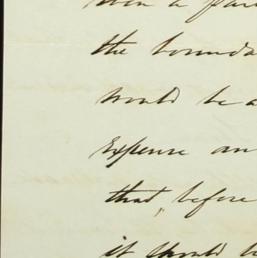 a par
the bounda
would be a
Expense an
that, before
it should b